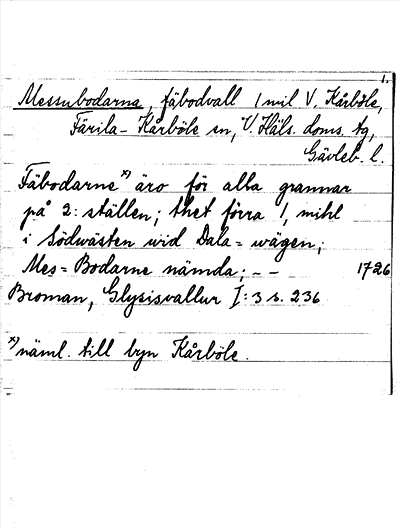 1.
Messubodarna, fäbodvall 1 mil V. Kårböle,
Färila-Kårböle sn, V. Häls. doms. tg,
Gävleb. l.
Fäbodarne x) äro för alla grannar
på 2: ställen; thet förra 1, mihl
i Södwästen wid Dala=wägen;
Mes=Bodarne nämda; - - 1726
Broman, Glysisvallur I: 3 s. 236
x) näml. till byn Kårböle.